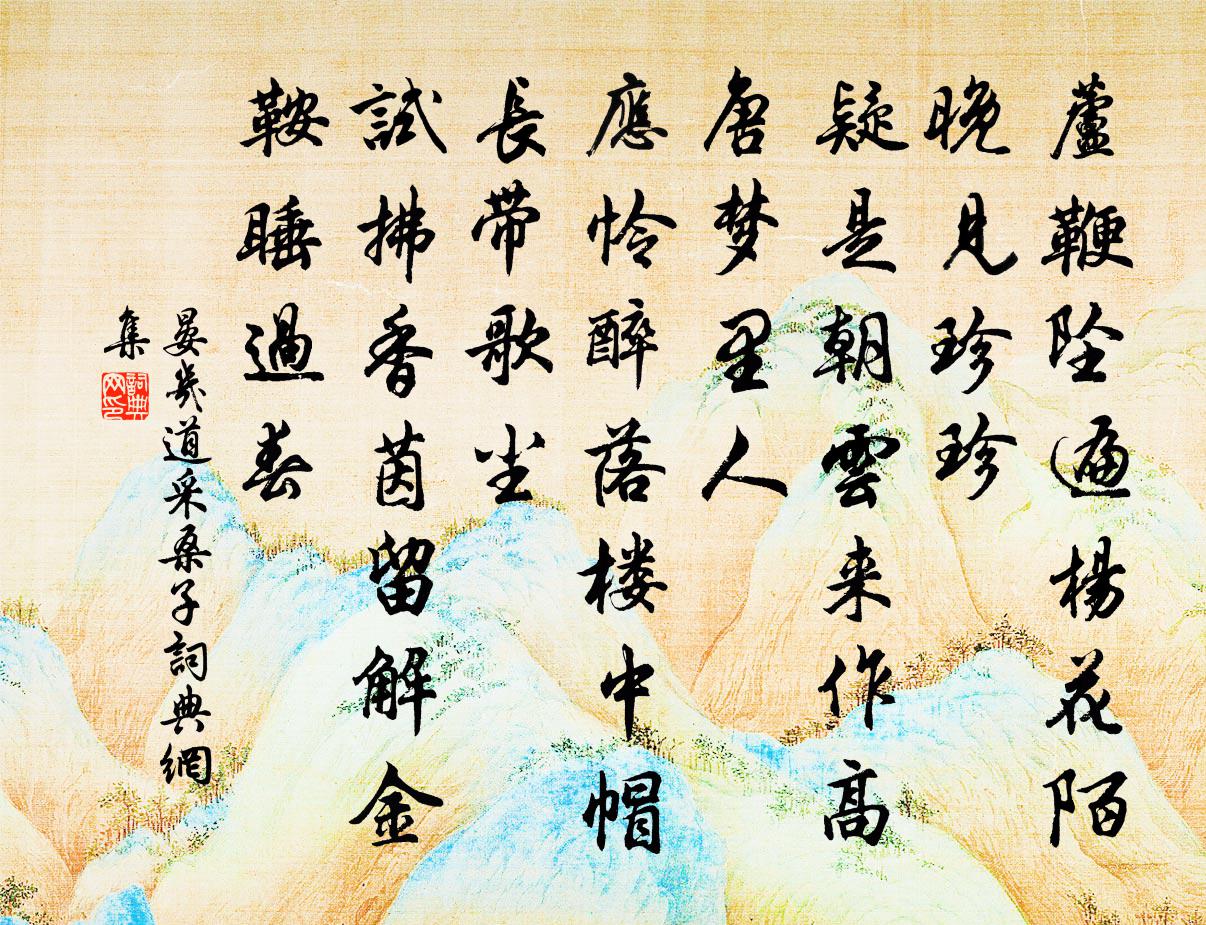 蘆鞭坠遍楊花陌
晚見珍珍
疑是朝雲来作高
唐梦里人
應怜醉落楼中帽
長带歌尘
試拂香茵留解金
鞍睡過春
晏幾道采桑子詞典網
集
詞典網印